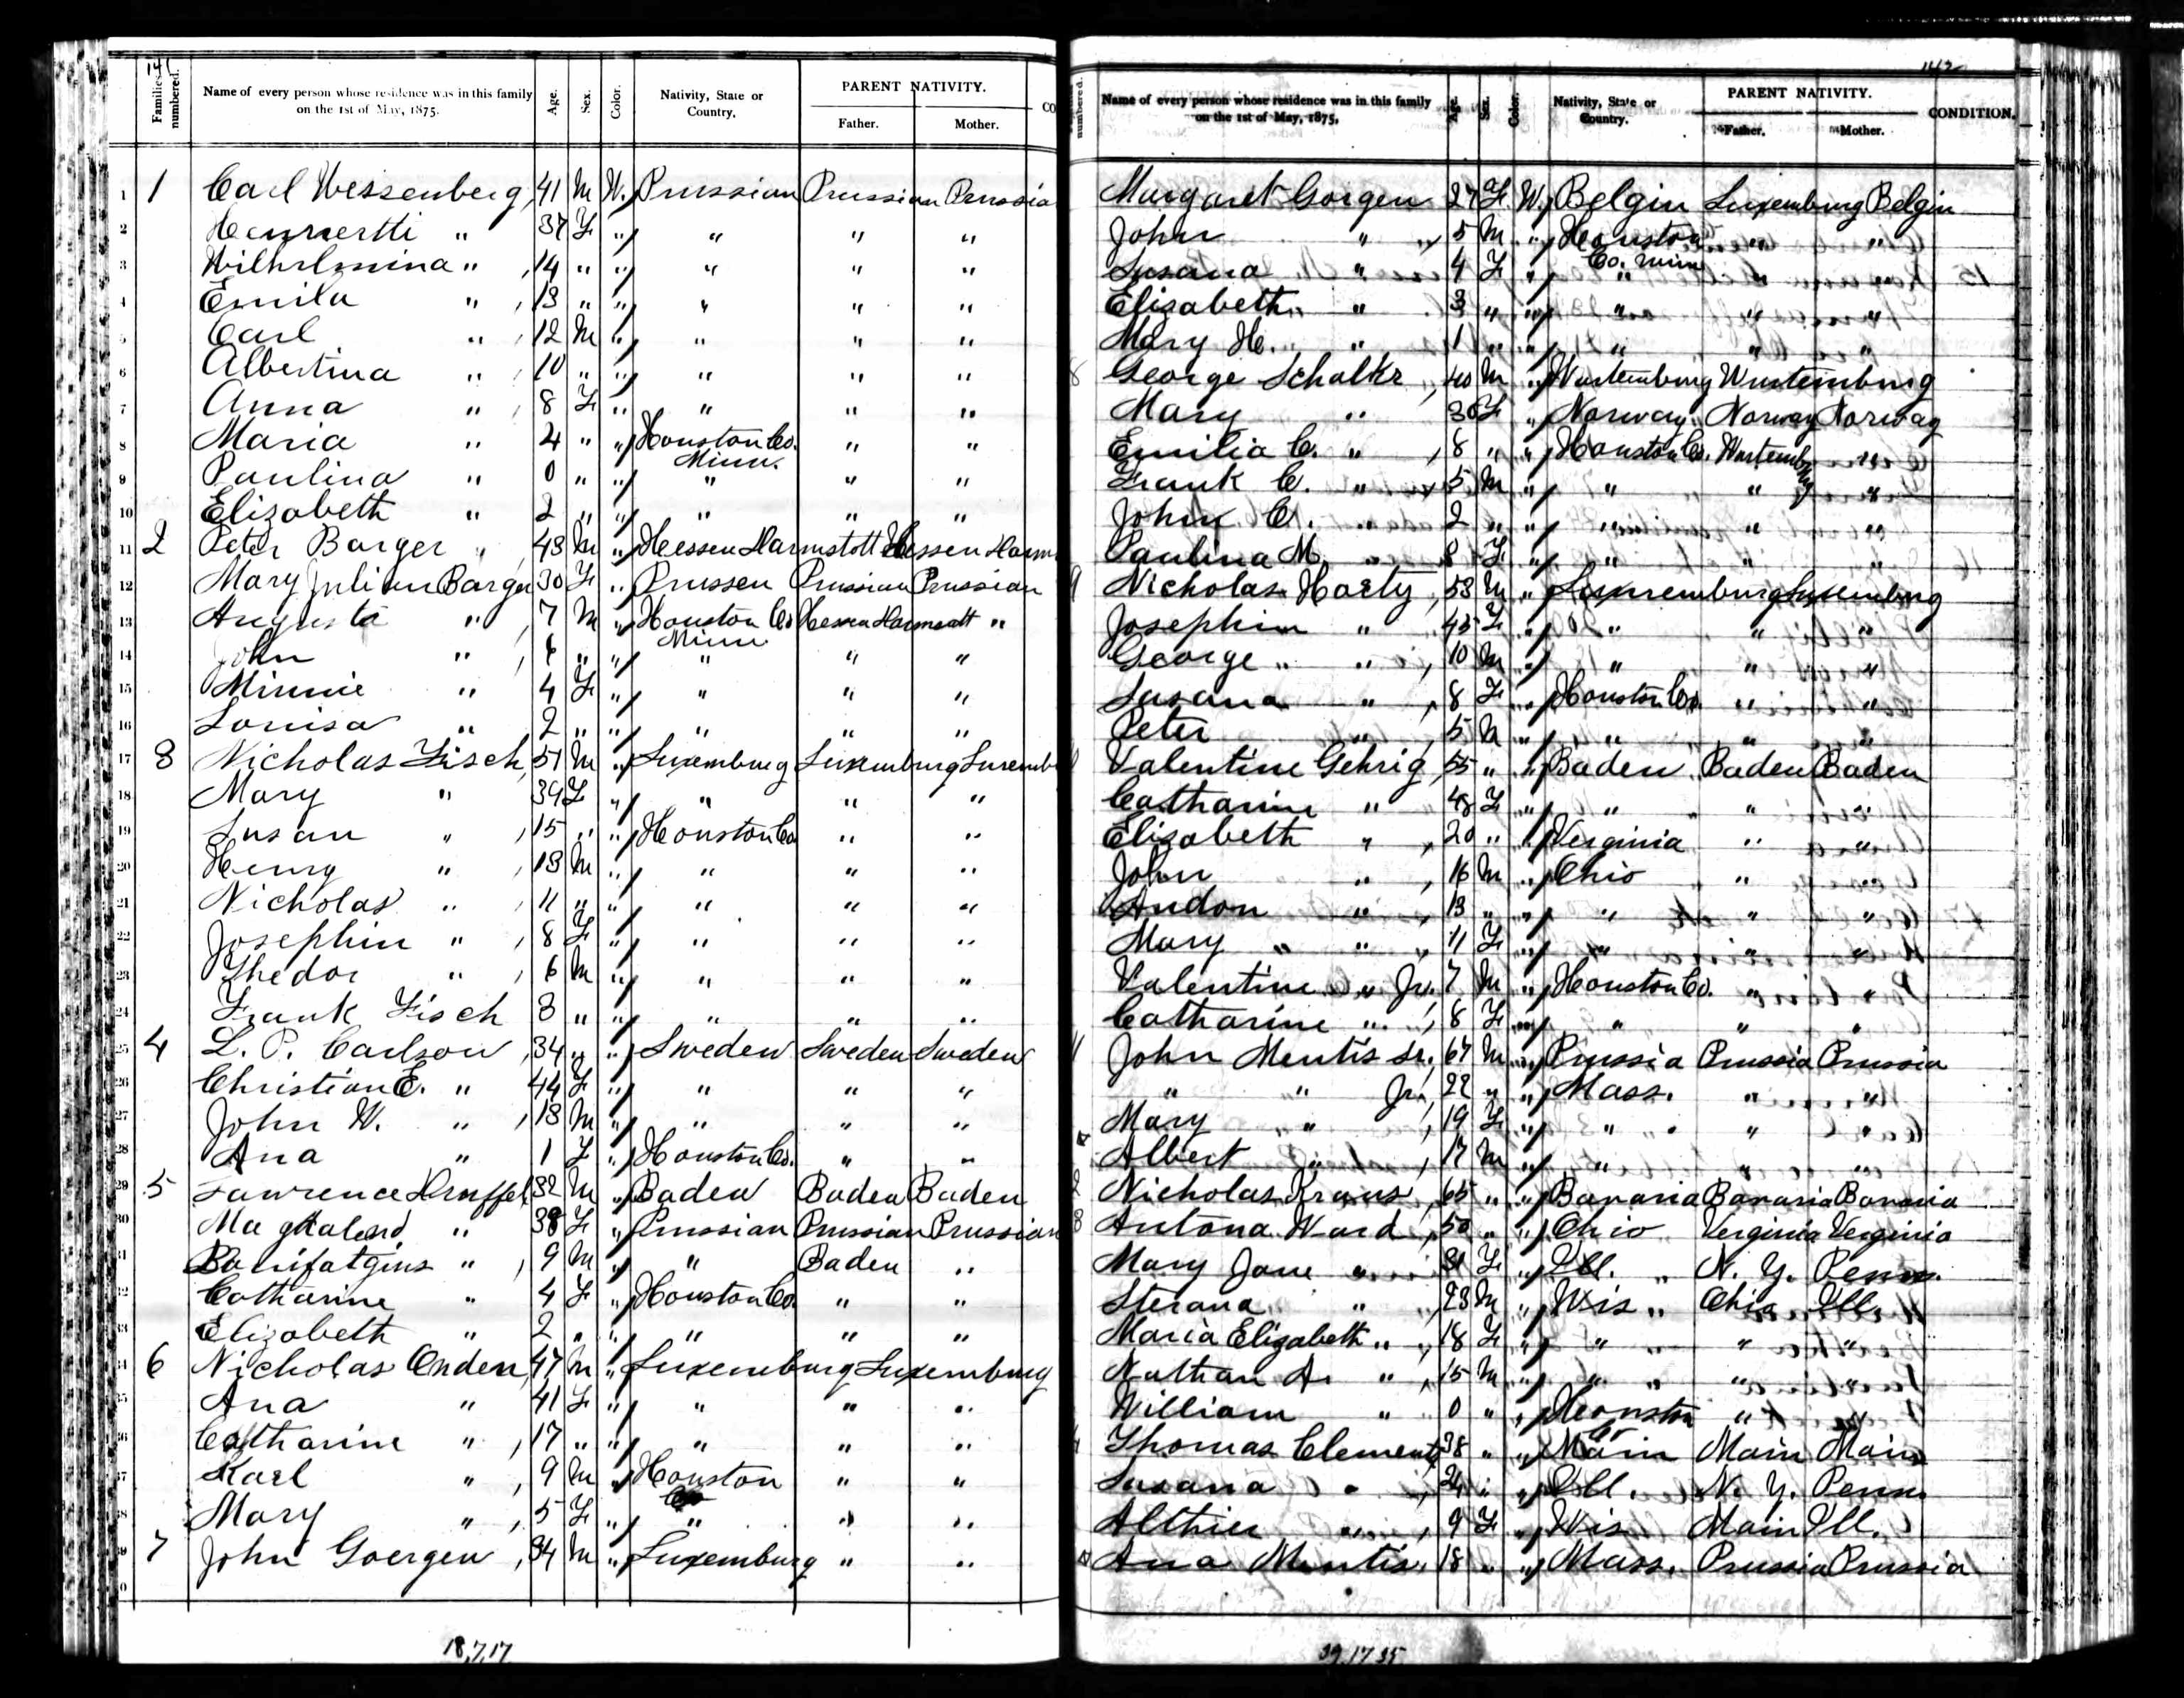 141
Families numbered. Name of every person whose residence was in this family on the 1st of May, 1875. Age. Sex. Color. Nativity, State or Country. PARENT NATIVITY. Father. Mother. CO
1 1 Carl Wessenberg, 41 M W. Prussian Prussian Prussia
2 Hennertti " 37 F " " " "
3 Wilhelmina " , 14 " " " " "
4 Emila " , 13 " " " " "
5 Carl " , 12 M " " " "
6 Albertina " , 10 " " " " "
7 Anna " , 8 F " " " "
8 Maria " 4 " " Houston Co. Minn. " "
9 Paulina " 0 " " " " "
10 Elizabeth " 2 " " " " "
11 2 Peter Barger " , 43 M " Hessen Harmstott Hessen Harm
12 Mary Julian Barger 30 F " Prussen Prussian Prussian
13 Augusta " , 7 M " Houston Co Minn "
14 John " , 6 " " " " "
15 Minnie " 4 F " " " "
16 Louisa " 2 " " " " "
17 3 Nicholas Fisch, 51 M " Luxemburg Luxemburg Luxemb
18 Mary " 39 F " " " "
19 Susan " , 15 " " Houston Co " "
20 Henry " , 13 M " " " "
21 Nicholas " , 11 " " " " "
22 Josephin " , 8 F " " " "
23 Thedor " , 6 M " " " "
24 Frank Fisch 3 " " " " "
25 4 L. P. Carlson , 34 " " Sweden Sweden Sweden
26 Christian E. " 44 F " " " "
27 John W. " , 13 M " " " "
28 Ana " 1 F " Houston Co. " "
29 5 Lawrence 32 M " Baden Baden Baden
30 " 38 F " Prussian Prussian Prussian
31 Bonifatgius " , 9 M " " Baden "
32 Catharine " 4 F " Houston Co. " "
33 Elizabeth " 2 " " " " "
34 6 Nicholas Onden, 47 M " Luxemburg Luxemburg
35 Ana " 41 F " " " "
36 Catharine " , 17 " " " " "
37 Karl " , 9 M " Houston Co " "
38 Mary " , 5 F " " " "
39 7 John Goergen , 34 M " Luxemburg " "
18,7,17
142
numbered. Name of every person whose residence was in this family on the 1st of May, 1875. Age. Sex. Color. Nativity, State or Country. PARENT NATIVITY. Father. Mother. CONDITION.
Margaret Gorgen 27 F W. Belgin Luxemburg Belgin
John " , 5 M " Houston Co. Minn " "
Susana " 4 F " " " "
Elizabeth " 3 " " " " "
Mary H. " 1 " " " " "
8 George Schaltz , 40 M " Wurtemburg Wurtemburg
Mary " 30 F " Norway Norway Norway
Emilia C. " , 8 " " Houston Co. Wurtemburg "
Frank C. " , 5 M " " " "
John C. " 2 " " " " "
Paulina M. " F " " " "
9 Nicholas Harty , 53 M " Luxemburg Luxemburg
Josephin " 43 F " " " "
George " , 10 M " " " "
Susana " , 8 F " Houston Co. " "
Peter " , 5 M " " " "
Valentine Gehrig , 55 " " Baden Baden Baden
Catharine " 48 F " " " "
Elizabeth " , 20 " " Verginia " "
John " , 16 M " Ohio " "
Andon " 13 " " " " "
Mary " , 11 F " " " "
Valentine " Jr. 7 M " Houston Co. " "
Catharine " , 8 F " " " "
11 John Mentis Sr., 67 M " Prussia Prussia Prussia
" " Jr. , 22 " " Mass. " "
Mary " , 19 F " " " "
Albert " , 17 M " " " "
2 Nicholas Kraus , 65 " " Bavaria Bavaria Bavaria
3 Antona Ward , 50 " " Ohio Verginia Verginia
Mary Jane " 31 F " Ill. N. Y. Penn.
Sterana " , 23 M " Wis " Ohio Ill.
Maria Elizabeth " , 18 F " " " "
Nathan A. " , 15 M " " " "
William " 0 " " Houston Co " "
4 Thomas Clements 38 " " Main Main Main
Susana " , 24 " " Ill. N. Y. Penn
Althier " , 9 F " Wis Main Ill.
Ana Mentis, 18 " " Mass. Prussia Prussia
39,17,35